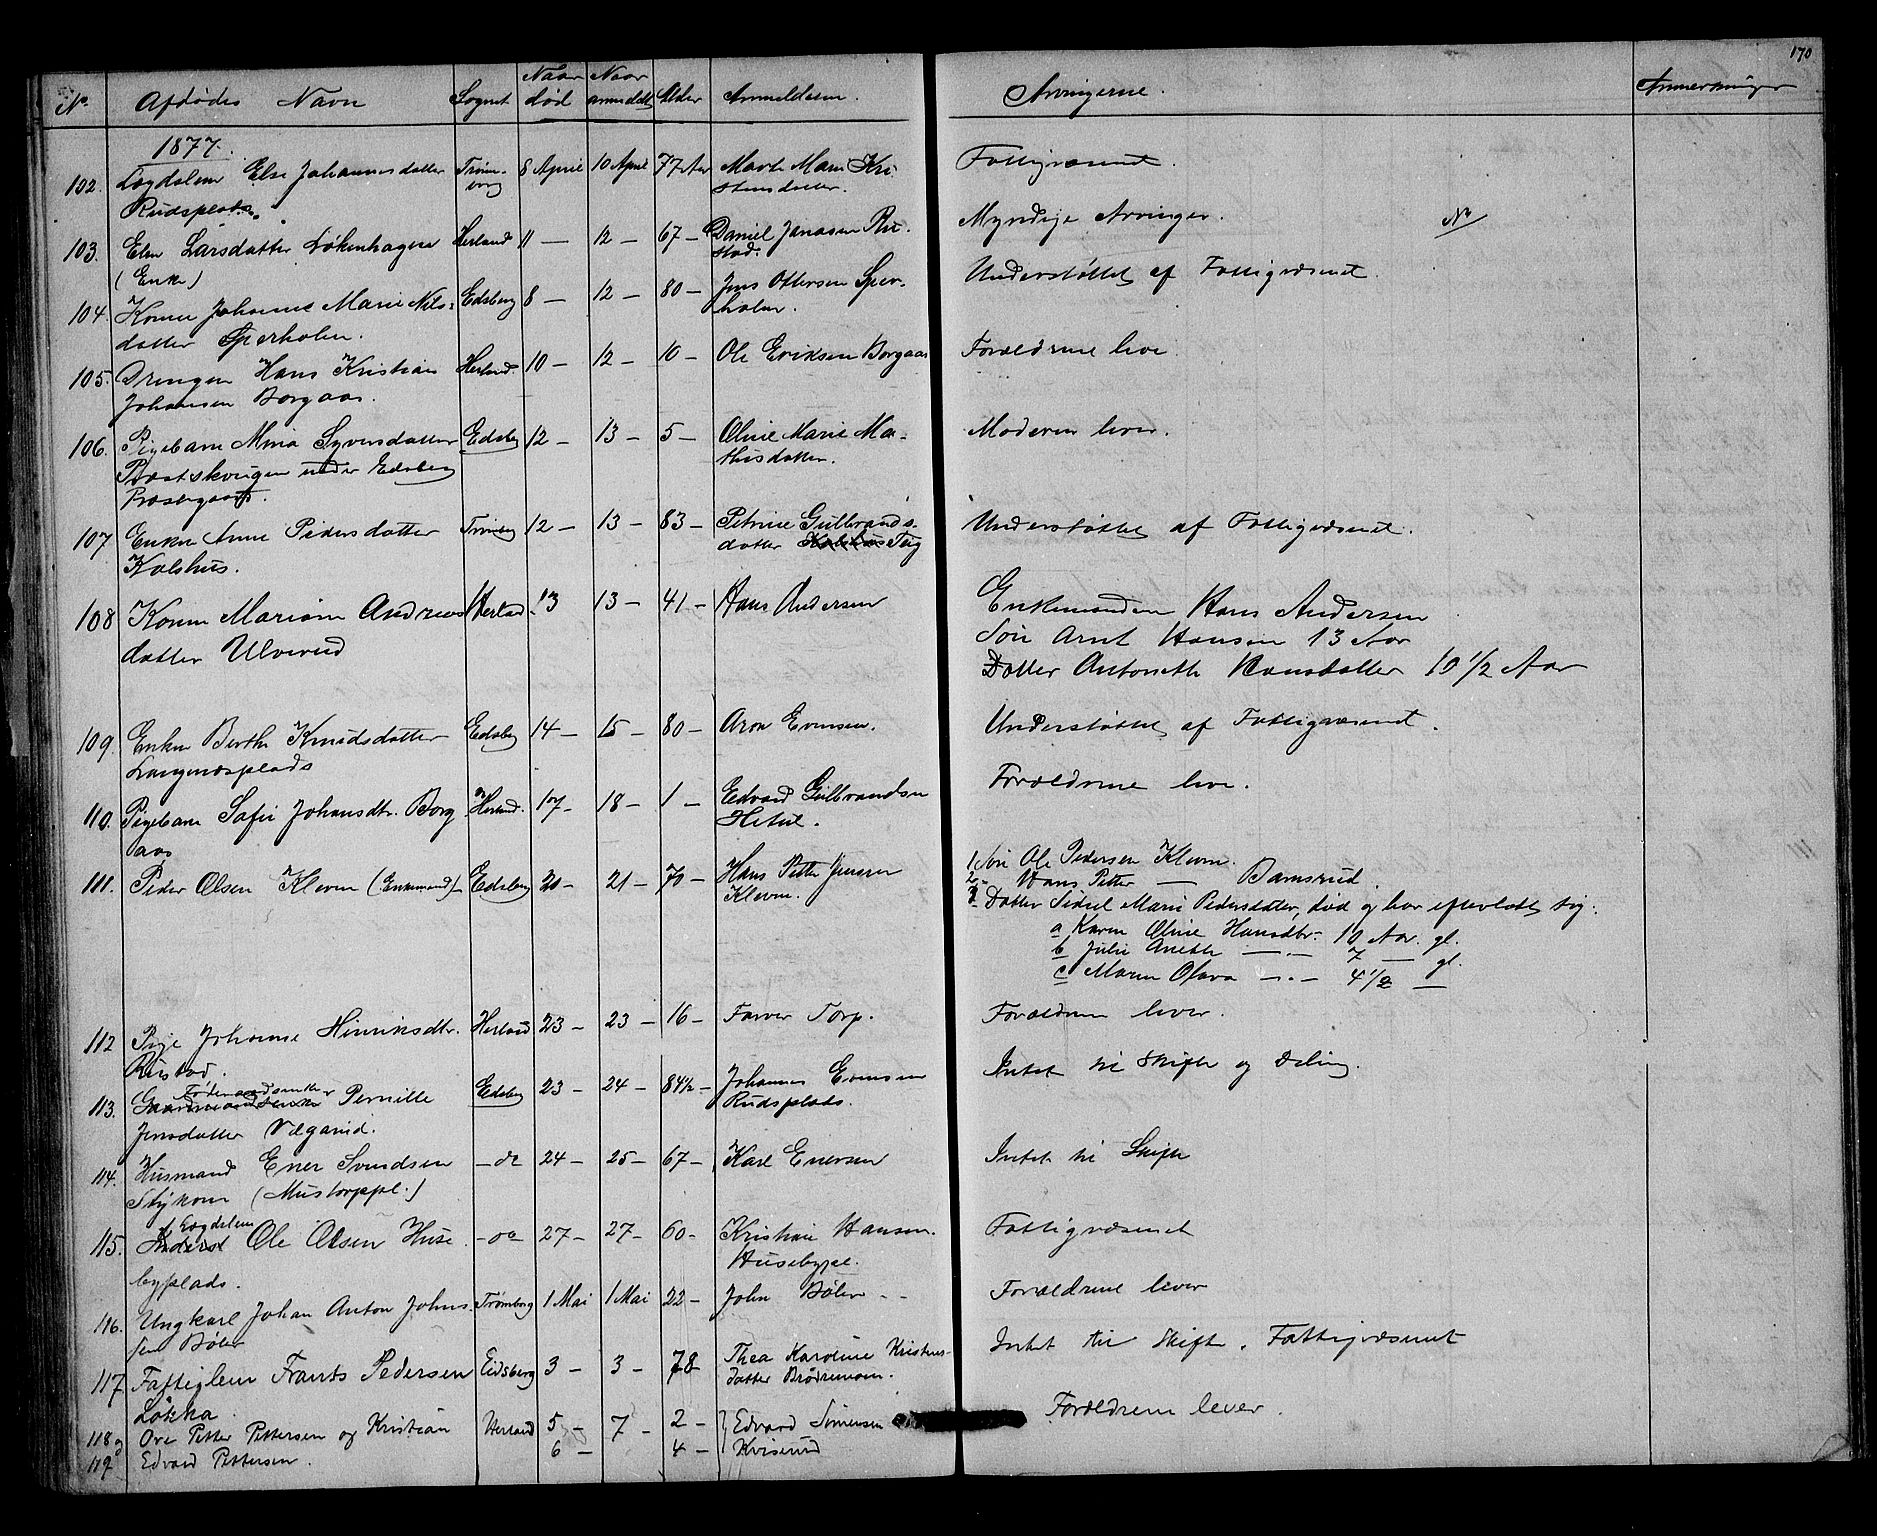 170
No. Afdødes Navn Sognet Naar død Naar anmeldt Alder Anmelderen. Arvingerne. Anmerkninger
1877.
102. Lægdslem Else Johannesdatter Trøm- 8 April 10 April 77 Aar Marthe Marie Kri- Fattigvæsenet.
Rudsplads. borg stensdatter.
103. Elen Larsdatter Løkenhagen Herland 11 — 12 — 67 — Daniel Jonasen Ru- Myndige Arvinger.
(Enke) stad.
104. Konen Johanne Marie Nils- Edsberg 8 — 12 — 80 — Jens Ottersen Sper- Understøttet af Fattigvæsenet.
datter Sperholen. holen.
105. Drengen Hans Kristian Herland. 10 — 12 — 10 — Ole Eriksen Borgaas Forældrene live
Johansen Borgaas.
106. Pigebarn Mina Syversdatter Edsberg 12 — 13 — 5 — Oline Marie Ma- Moderen lever.
Præstskougen under Edsberg thisdatter.
Præstegaard.
107 Enken Anne Pedersdatter Trømborg 12 — 13 — 83 — Petrine Gulbrands- Understøttet af Fattigvæsenet.
Kolshus. datter Kolshus Teig
108 Konen Mariann Andreas Herland 13 13 — 41 — Hans Andersen Enkemanden Hans Andersen
datter Ulverud Søn Arnt Hansen 13 Aar
Datter Antonette Hansdatter 10 1/2 Aar
109. Enken Berthe Knudsdatter Edsberg 14 — 15 — 80 — Aron Evensen. Understøttet af Fattigvæsenet.
Langenæsplads
110. Pigebarn Sofie Johansdtr. Borg Herland. 17 — 18 — 1 — Edvard Gulbrandsen Forældrene live.
aas
111. Peder Olsen Kleven (Enkemand) Edsberg 20 — 21 — 70 — Hans Petter Jensen 1 Søn Ole Pedersen Kleven.
Kleven. 2 — Hans Petter — Bamsrud.
3 Datter Sidsel Marie Pedersdatter, død og har efterladt sig:
a Karen Oline Hansdtr. 10 Aar gl.
b Julie Anette —.— 7 — gl.
c Maren Olava —.— 4 1/2 —
112 Pige Johanne Hinriksdtr. Herland 23 — 23 — 16 — Farver Torp. Forældrene lever.
Rustad.
113. Gaardmandsenke Føderaadsenke Pernille Edsberg 23 — 24 — 84 1/2 — Johannes Evensen Intet til Skifte og Deling.
Jensdatter Vægarud. Rudsplads.
114. Husmand Ener Svendsen — do 24 — 25 — 67 — Karl Enersen Intet til Skifte
(Mustorppl.)
115. Inderst Lægdslem Ole Olsen Huse — do 27 — 27 — 60 — Kristian Hansen. Fattigvæsenet
byplads. Husebypl.
116. Ungkarl Johan Anton Johns- Trømborg 1 Mai 1 Mai 22 — John Bøler Forældrene lever
sen Bøler
117 Fattiglem Frants Pedersen Eidsberg 3 — 3 — 78 Thea Karoline Kristens- Intet til Skifte. Fattigvæsenet
Løkka. datter Brødremoen.
118 og Ove Petter Pettersen og Kristian Herland 5 — 7 — 2 — Edvard Simensen Forældrene lever.
119 Edvard Pettersen. 6 — 4 — Kviserud